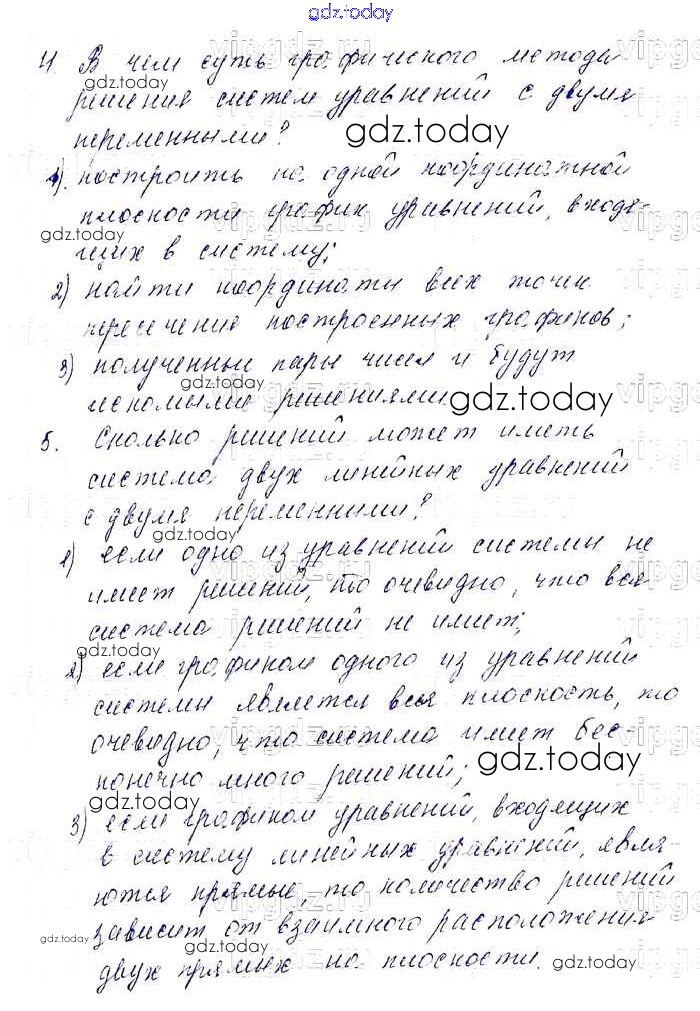 gdz.today
4. В чем суть графического метода
gdz.today
решения систем уравнений с двумя
переменными?
gdz.today
1). построить на одной координатной
плоскости график уравнений, входя-
gdz.today
щих в систему;
2) найти координаты всех точек
пересечения построенных графиков;
3) полученные пары чисел и будут
gdz.today
искомыми решениями.
gdz.today
5. Сколько решений может иметь
система двух линейных уравнений
с двумя переменными?
gdz.today
1) если одно из уравнений системы не
имеет решений, то очевидно, что вся
система решений не имеет;
gdz.today
2) если графиком одного из уравнений
системы является вся плоскость, то
очевидно, что система имеет бес-
gdz.today
конечно много решений;
gdz.today
3) если графиком уравнений, входящих
в систему линейных уравнений, явля-
ются прямые, то количество решений
зависит от взаимного расположения
gdz.today
gdz.today
двух прямых на плоскости.
gdz.today